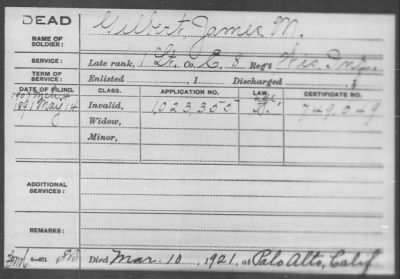 DEAD
NAME OF SOLDIER: Gilbert, James M.
SERVICE: Late rank, 1 Lt. Co. E, 8 Reg't Wis. Inf.
TERM OF SERVICE: Enlisted , 1 Discharged , 1
DATE OF FILING. CLASS. APPLICATION NO. LAW. CERTIFICATE NO.
1891 May 14 Invalid, 1,023,355 749,049
Widow,
Minor,
ADDITIONAL SERVICES:
REMARKS:
Died Mar. 10, 1921, at Palo Alto, Calif